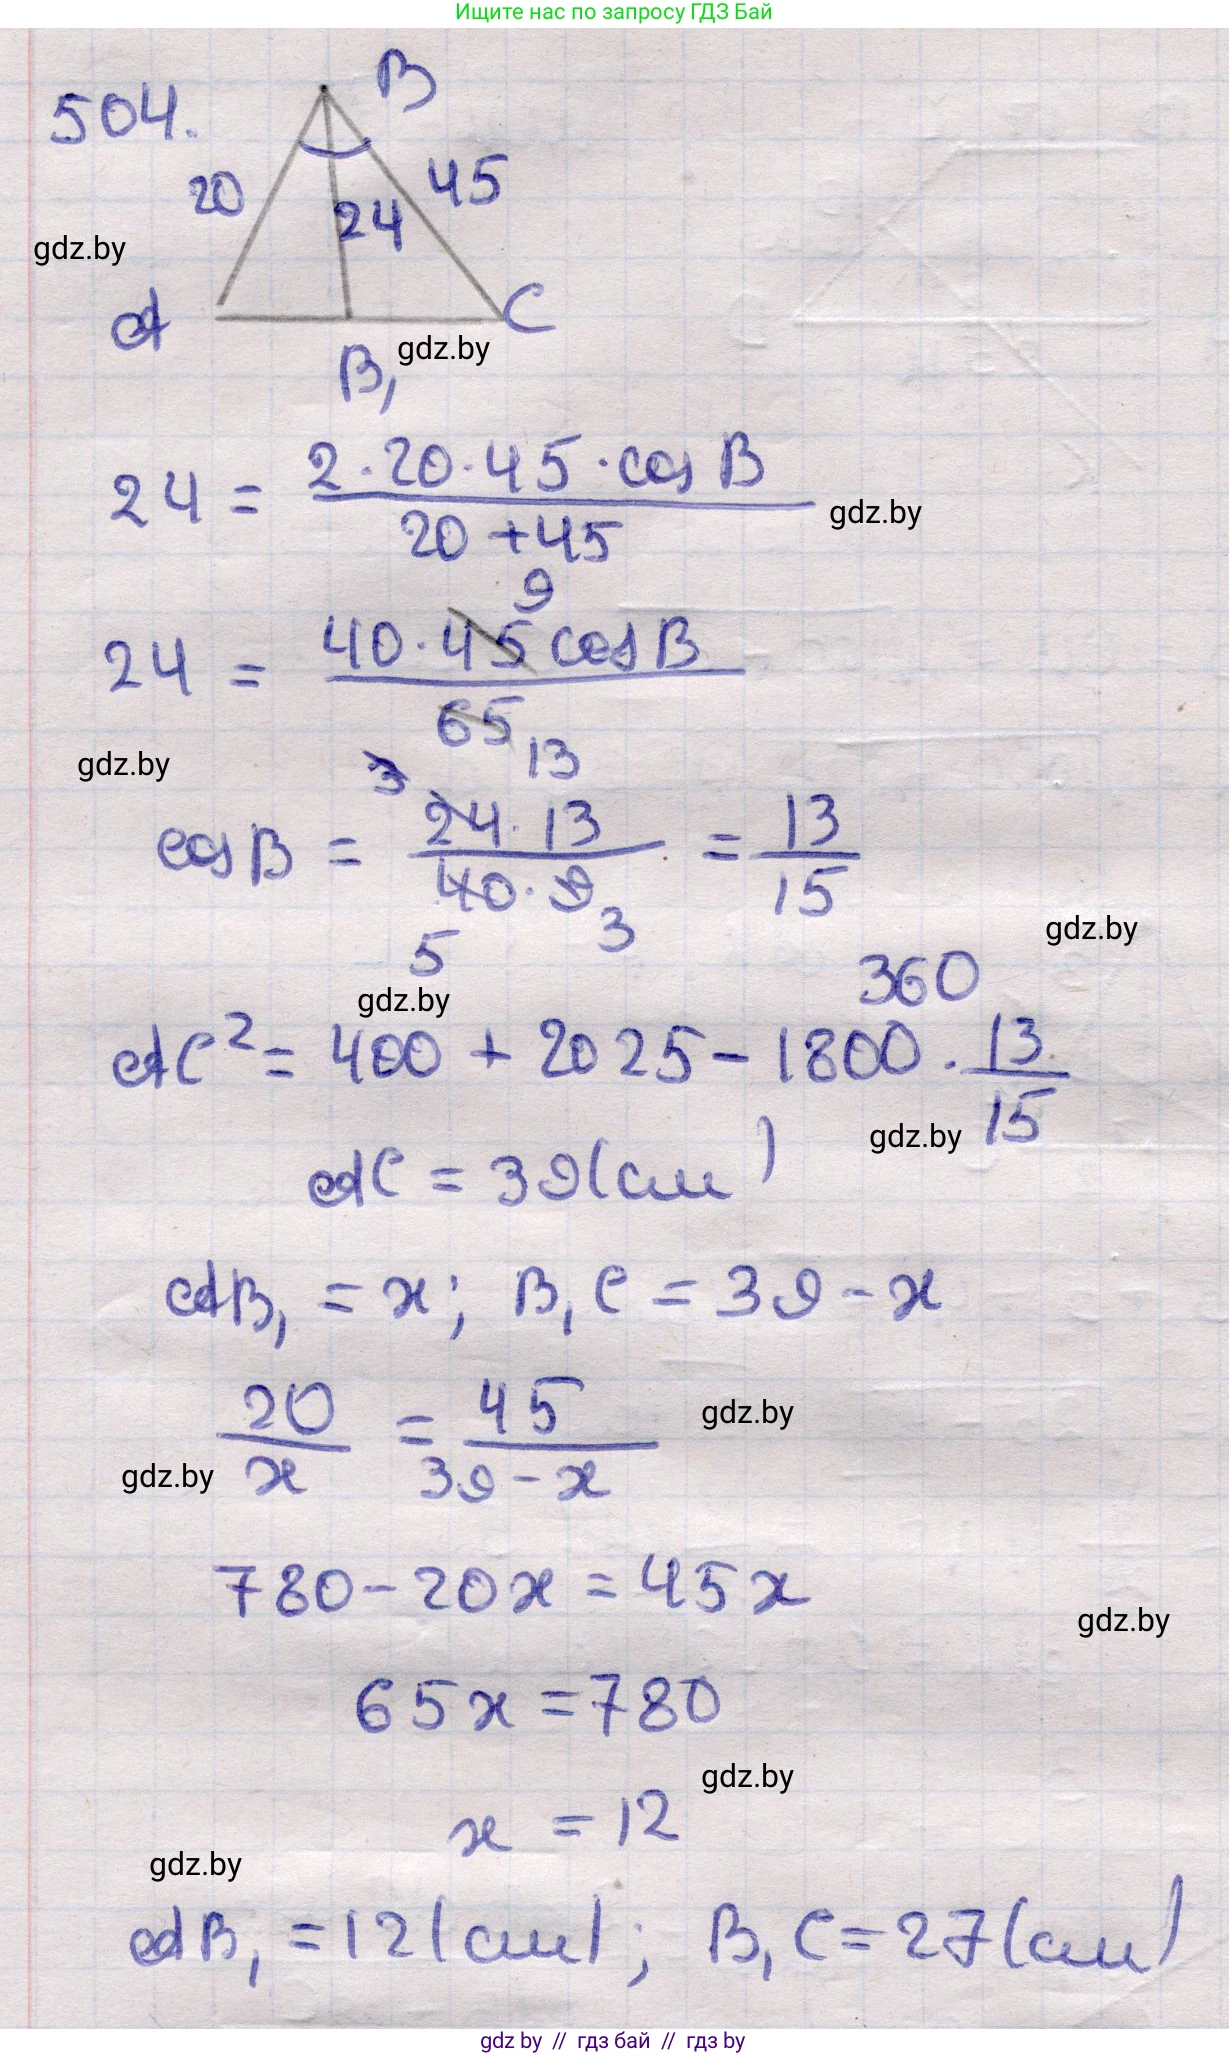 Ищите нас по запросу ГДЗ Бай
504.
B
20
45
24
gdz.by
A
C
B₁
gdz.by
24 = (2·20·45·cos B)/(20 + 45)
gdz.by
9
24 = (40·45 cos B)/65
13
gdz.by
3
cos B = (24·13)/(40·9) = 13/15
5
3
gdz.by
gdz.by
360
AC² = 400 + 2025 - 1800 · 13/15
gdz.by
AC = 39(см)
AB₁ = x; B₁C = 39 - x
20/x = 45/(39 - x)
gdz.by
gdz.by
780 - 20x = 45x
gdz.by
65x = 780
gdz.by
x = 12
gdz.by
AB₁ = 12(см); B₁C = 27(см)
gdz by // гдз бай // gdz by